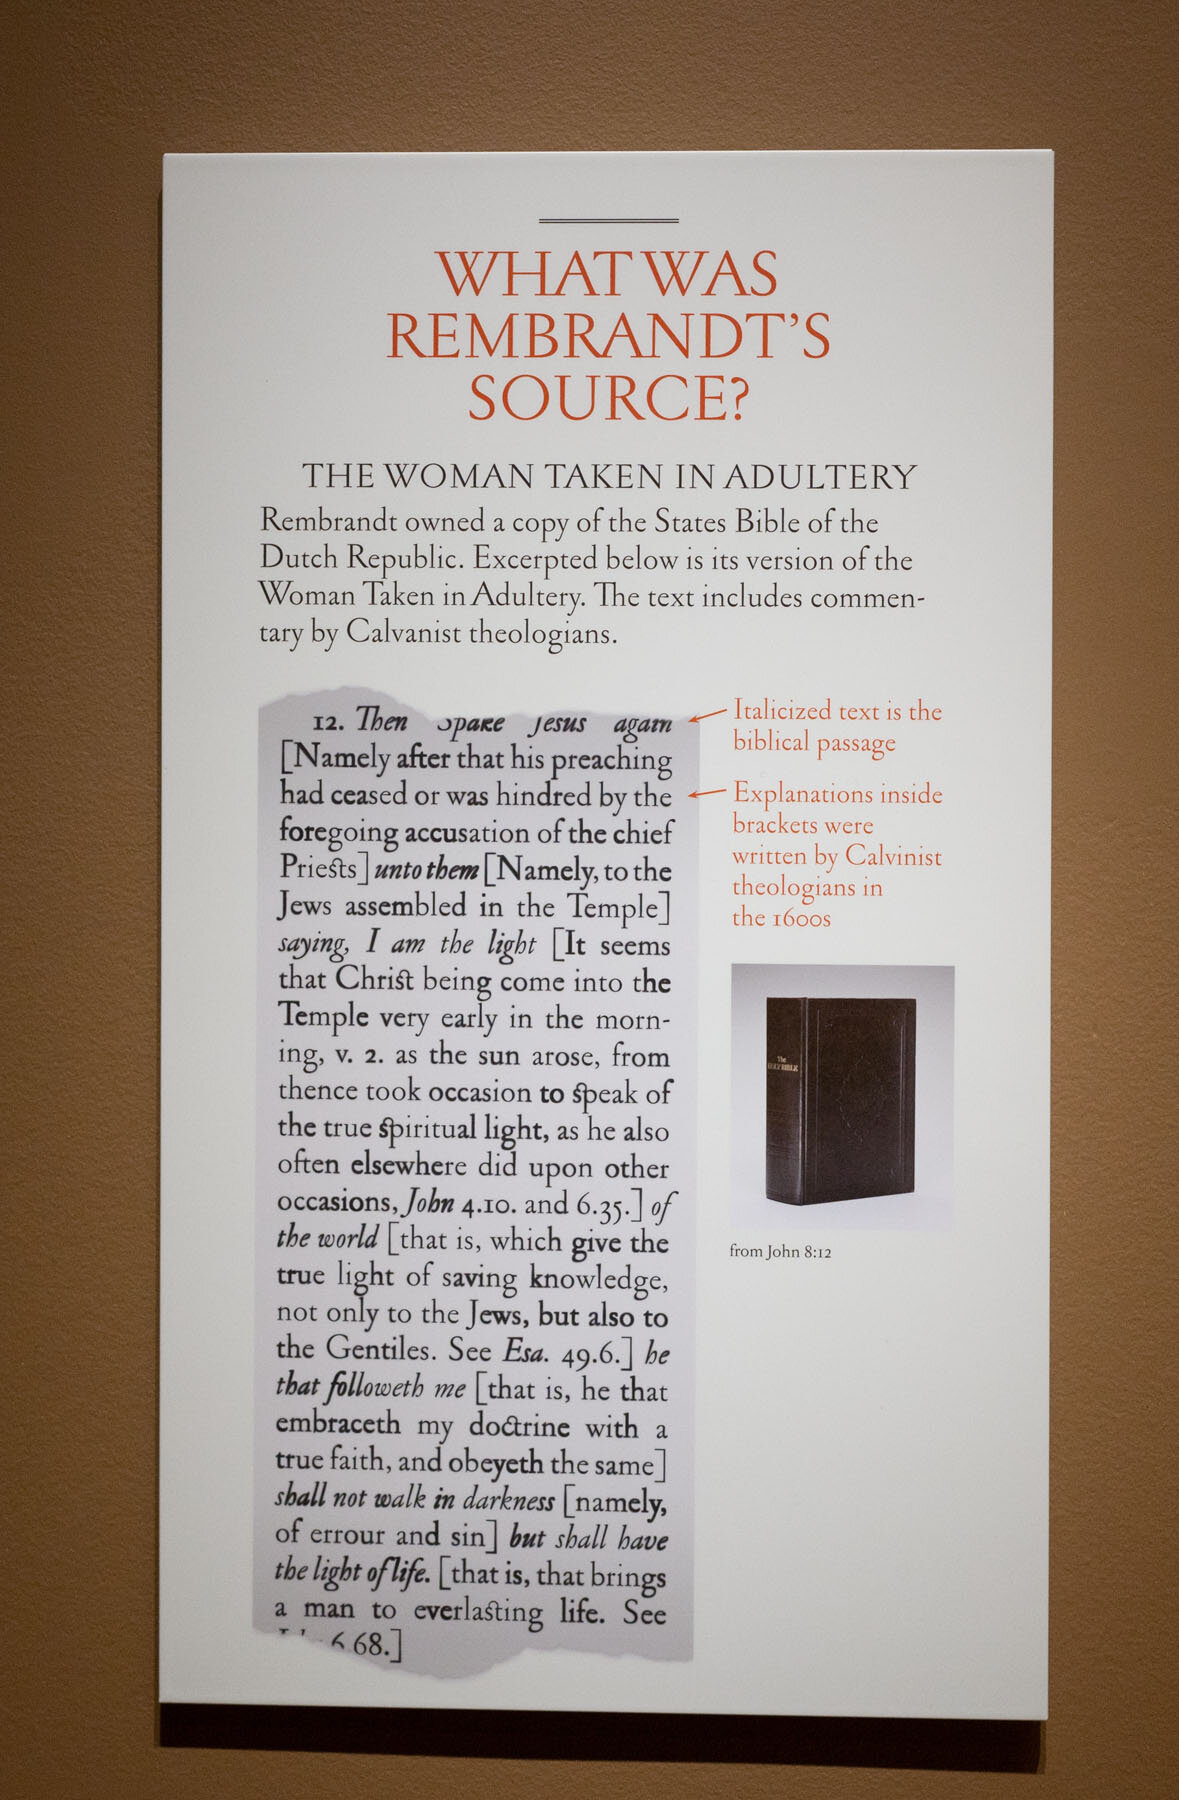 WHAT WAS
REMBRANDT'S
SOURCE?
THE WOMAN TAKEN IN ADULTERY
Rembrandt owned a copy of the States Bible of the
Dutch Republic. Excerpted below is its version of the
Woman Taken in Adultery. The text includes commen-
tary by Calvanist theologians.
12. Then spake Jesus again
[Namely after that his preaching
had ceased or was hindred by the
foregoing accusation of the chief
Priests] unto them [Namely, to the
Jews assembled in the Temple]
saying, I am the light [It seems
that Christ being come into the
Temple very early in the morn-
ing, v. 2. as the sun arose, from
thence took occasion to speak of
the true spiritual light, as he also
often elsewhere did upon other
occasions, John 4.10. and 6.35.] of
the world [that is, which give the
true light of saving knowledge,
not only to the Jews, but also to
the Gentiles. See Esa. 49.6.] he
that followeth me [that is, he that
embraceth my doctrine with a
true faith, and obeyeth the same]
shall not walk in darkness [namely,
of errour and sin] but shall have
the light of life. [that is, that brings
a man to everlasting life. See
6.68.]
Italicized text is the
biblical passage
Explanations inside
brackets were
written by Calvinist
theologians in
the 1600s
The
HOLY BIBLE
from John 8:12